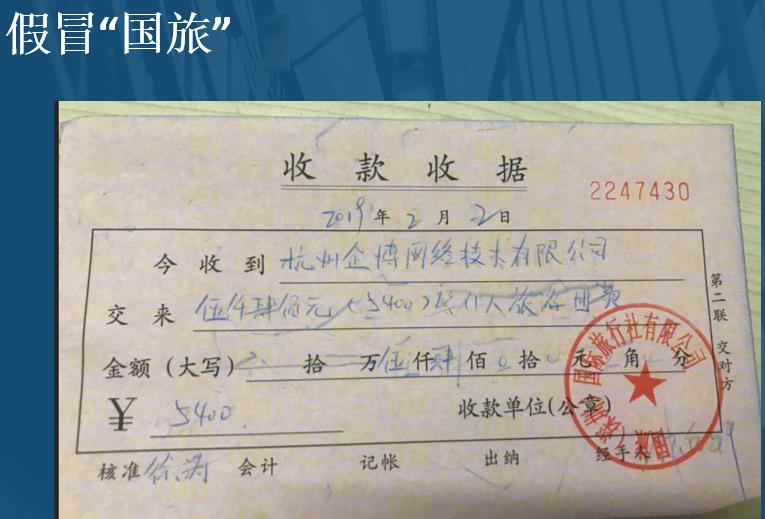 假冒“国旅”
收款收据
2247430
2019年2月2日
今收到 杭州企博网络技术有限公司
交来 伍仟肆佰元(5400)叁个人旅游团费
金额(大写) 拾 万伍仟肆佰0拾 元 角 分
¥ 5400 收款单位(公章)
核准 会计 记帐 出纳 经手人
第二联 交对方
国际旅行社有限公司